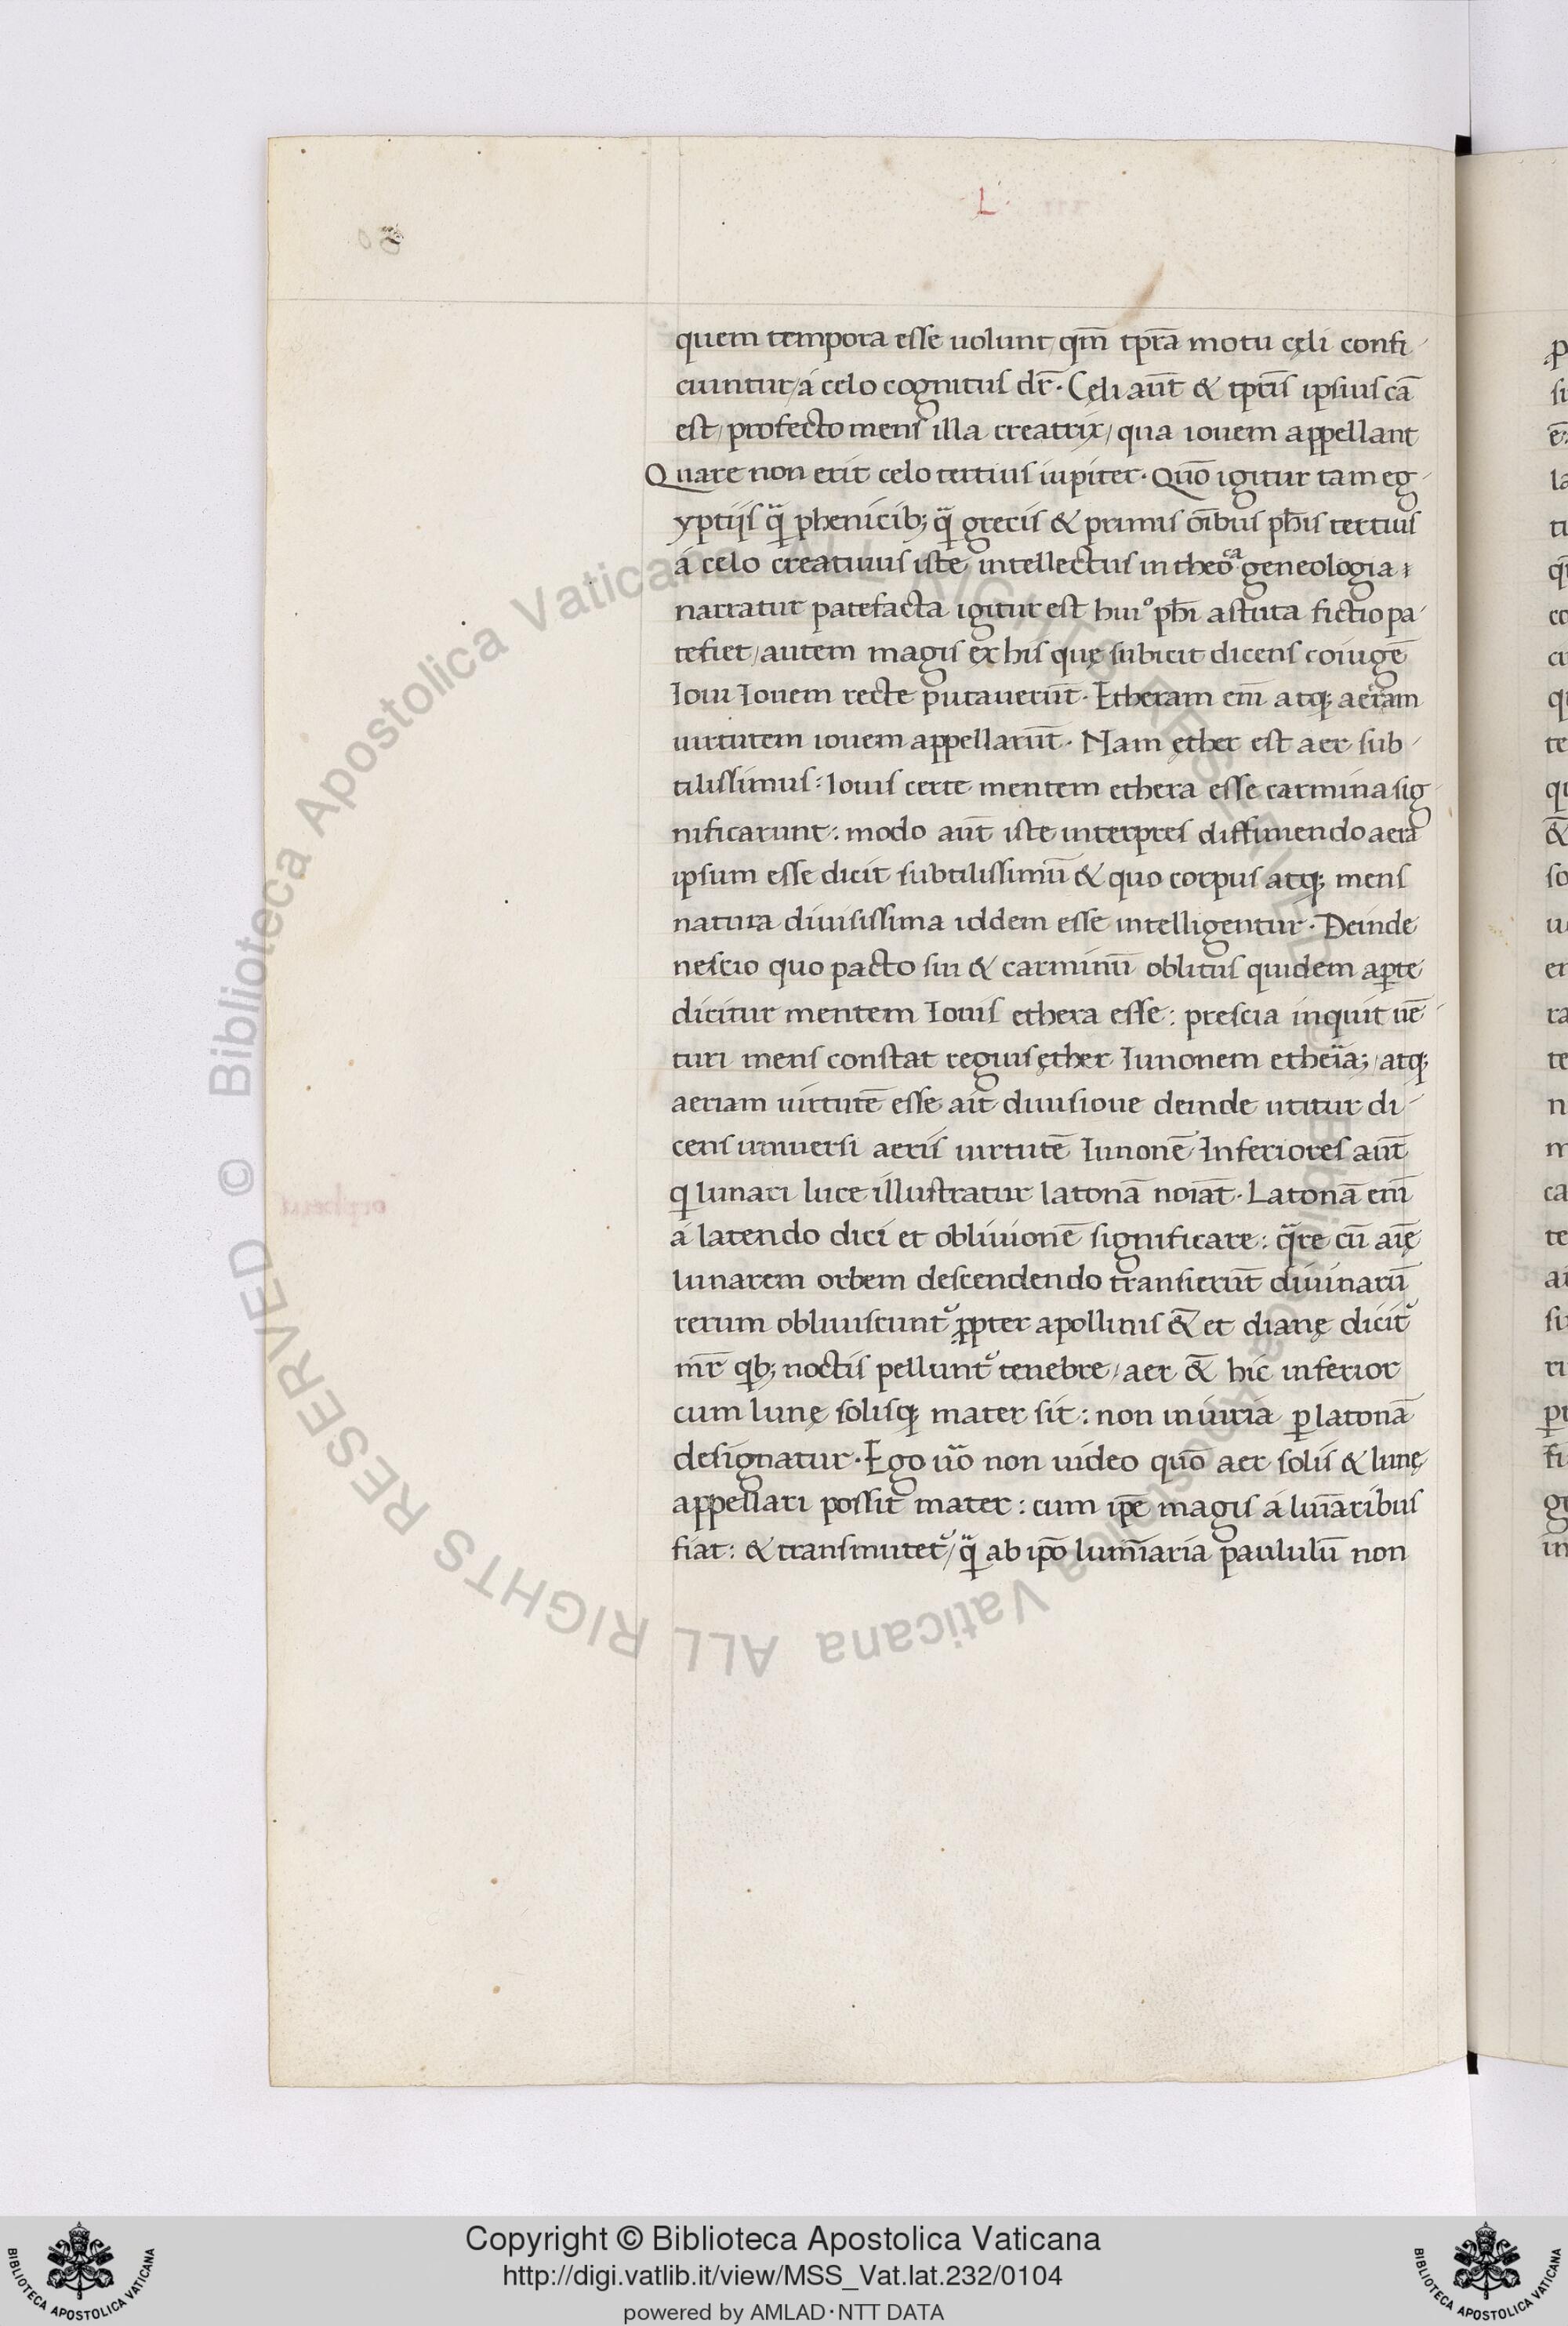 L
quem tempora esse uolunt/ qm̄ tp̄ra motu cęli confi-
ciuntur/ á celo cognitus dr̄. Cęli aūt & tp̄ris ipsius cā
est/ profecto mens illa creatrix/ qua iouem appellant
Quare non erit celo tertius iupiter. Quō igitur tam eg-
yptijs qͣ̃ phenicib; qͣ̃ grecis & primis oībus ph̄is tertius
á celo creatiuus iste intellectus in theōca geneologia
narratur patefacta igitur est huiꝰ ph̄i astuta fictio pa-
tefiet/ autem magis ex his quę subicit dicens coiugē
Ioui Iouem recte putauerūt. Etheram em̄ atq; aeriam
uirtutem iouem appellarūt. Nam ęther est aer sub-
tilissimus: Iouis certe mentem ethera esse carmina sig-
nificarunt: modo aūt iste interpres diffiniendo aera
ipsum esse dicit subtilissimū & quo corpus atq; mens
natura diuisissima iddem esse intelligentur. Deinde
nescio quo pacto sui & carminū oblitus quidem aꝑte
dicitur mentem Iouis ethera esse: prescia inquit uē-
turi mens constat regius ęther Iunonem etheīa; / atq;
aeriam uirtutē esse ait diuisione deinde utitur di-
cens uniuersi aeris uirtutē Iunonē Inferiores aūt
q lunari luce illustratur latonā noiāt. Latonā em̄
á latendo dici et obliuionē significare: qͣ̃re cū aīę
lunarem orbem descendendo transierūt diuinarū
rerum obliuiscuntᷣ ꝓpter apollinis &̄ et dianę dicitᷣ
mr̄ qb; noctis pelluntᷣ tenebre/ aer &̄ hic inferior
cum lunę solisq; mater sit: non iniuria ꝑ latonā
designatur. Ego uͦ̃ non uideo quō aer solis & lunę
appellari possit mater: cum ip̄e magis á lun̄aribus
fiat: & transmutetᷣ/ qͣ̃ ab ip̄o lum̄iaria paululū non
Copyright © Biblioteca Apostolica Vaticana
http://digi.vatlib.it/view/MSS_Vat.lat.232/0104
powered by AMLAD·NTT DATA
BIBLIOTECA APOSTOLICA VATICANA
BIBLIOTECA APOSTOLICA VATICANA
© Biblioteca Apostolica Vaticana ALL RIGHTS RESERVED © Biblioteca Apostolica Vaticana ALL RIGHTS RESERVED